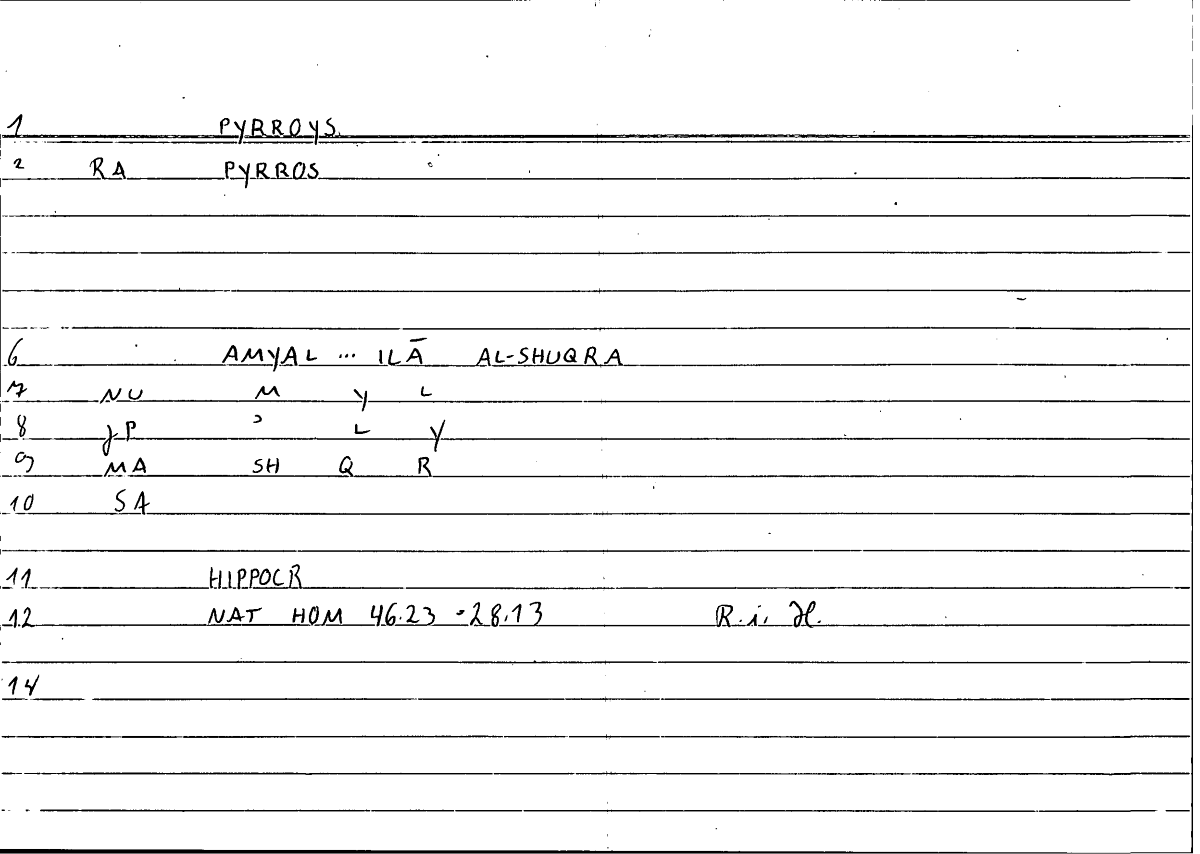 1 PYRROYS.
2 RA PYRROS
6 AMYAL ... ILĀ AL-SHUQRA
7 NU M Y L
8 JP ʾ L Y
9 MA SH Q R
10 SA
11 HIPPOCR
12 NAT HOM 46.23 -28.13 R. i. H.
14